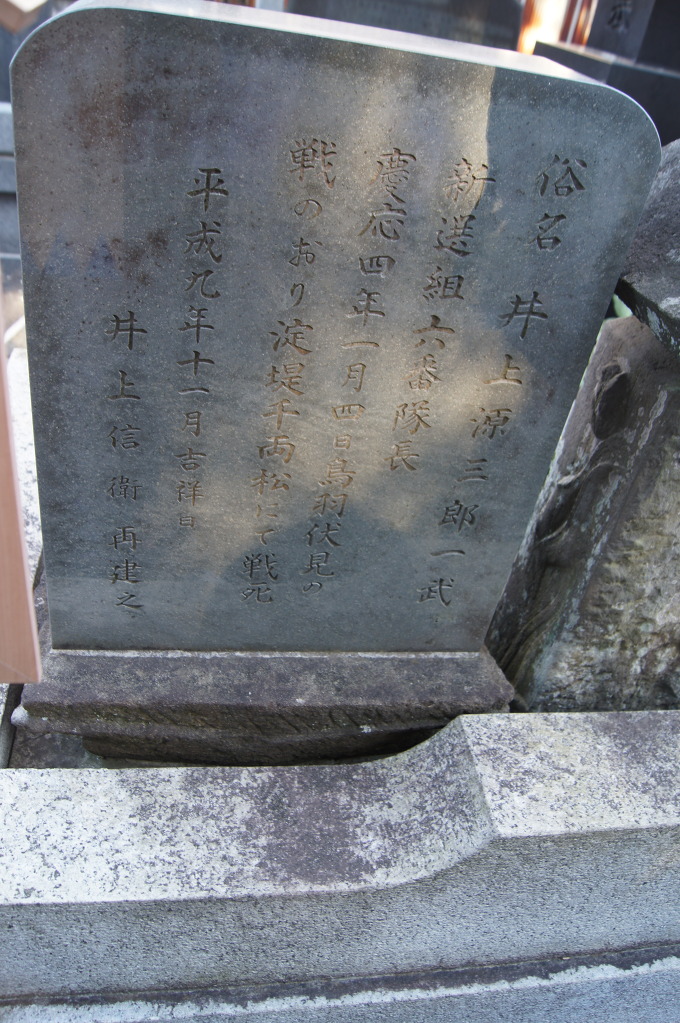 俗名 井上源三郎一武
新選組六番隊長
慶応四年一月四日鳥羽伏見の
戦のおり淀堤千両松にて戦死
平成九年十一月吉祥日
井上信衛再建之